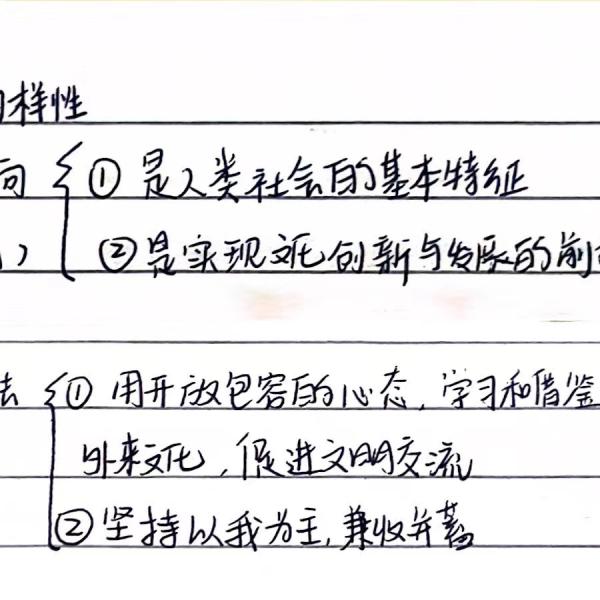 样性
向 ① 是人类社会的基本特征
② 是实现文化创新与发展的前
法 ① 用开放包容的心态，学习和借鉴
外来文化，促进文明交流
② 坚持以我为主，兼收并蓄